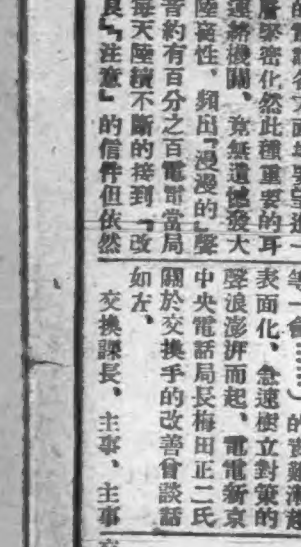 層緊密化然此種重要的耳
連絡機關、竟無遺憾發大
陸商性、頻出『漫漫的』聲
音約有百分之百電電當局
每天陸續不斷的接到『改
良』『注意』的信件但依然
等一會……）的責難漸趨
表面化、急速樹立對策的
聲浪澎湃而起、電電新京
中央電話局長梅田正二氏
關於交換手的改善會談話
如左、
交換課長、主事、主事